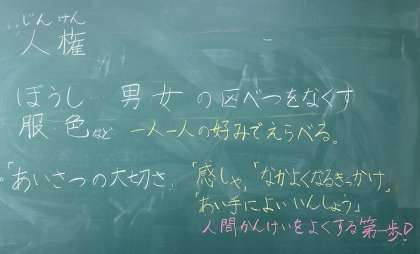 じんけん
人権
ぼうし 男女の区べつをなくす
服・色など 一人一人の好みでえらべる。
「あいさつの大切さ」 「感しゃ」「なかよくなるきっかけ」
「あい手によいいんしょう」
人間かんけいをよくする第一歩!